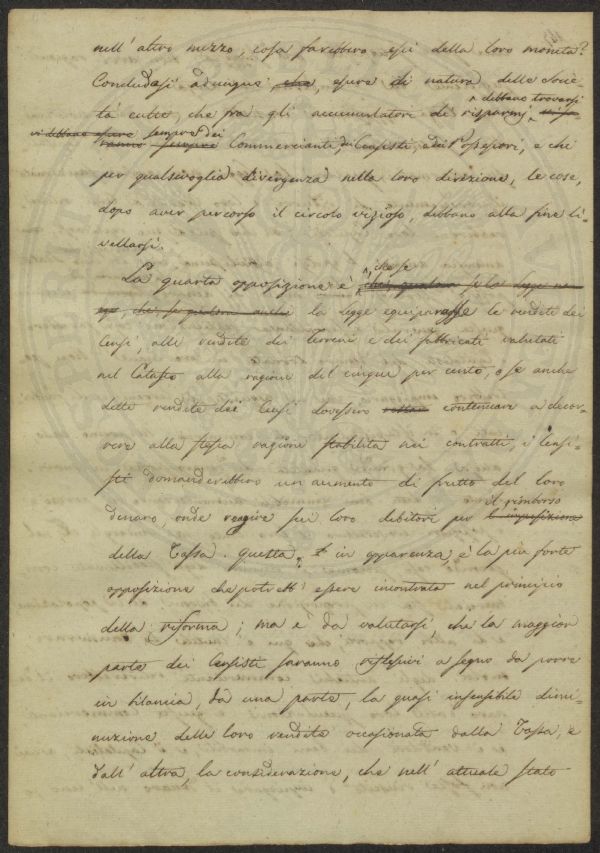 nell' altro mezzo, cosa farebbero essi della loro moneta?
Concludasi adunque che, essere di natura delle Socie-
tà culte, che fra gli accumulatori de' risparmj
debbano trovarsi
vi debbano essere sempre dei
ranno sempre Commercianti, dei Censisti, e dei Possessori, e che
per qualsivoglia divergenza nella loro direzione, le cose,
dopo aver percorso il circolo vizioso, debbano alla fine li-
vellarsi.
che se
La quarta opposizione è che, qualora se la legge
che se qualora anche la legge equiparasse le vendite dei
Censi, alle vendite dei Terreni e dei fabbricati valutati
nel Catasto alla ragione del cinque per cento, e se anche
dette vendite dei Censi dovessero continuare a decor-
rere alla stessa ragione stabilita nei contratti, i Censi-
sti domanderebbero un aumento di frutto del loro
denaro, onde reagire sui loro debitori per
il rimborso
l'imposizione
della Tassa. Questa, in apparenza, è la più forte
opposizione che potrebb' essere incontrata nel principio
della riforma; ma è da valutarsi, che la maggior
parte dei Censisti saranno riflessivi a segno da porre
in bilancia, da una parte, la quasi insensibile dimi-
nuzione delle loro rendite occasionata dalla Tassa, e
dall' altra, la considerazione, che nell' attuale stato